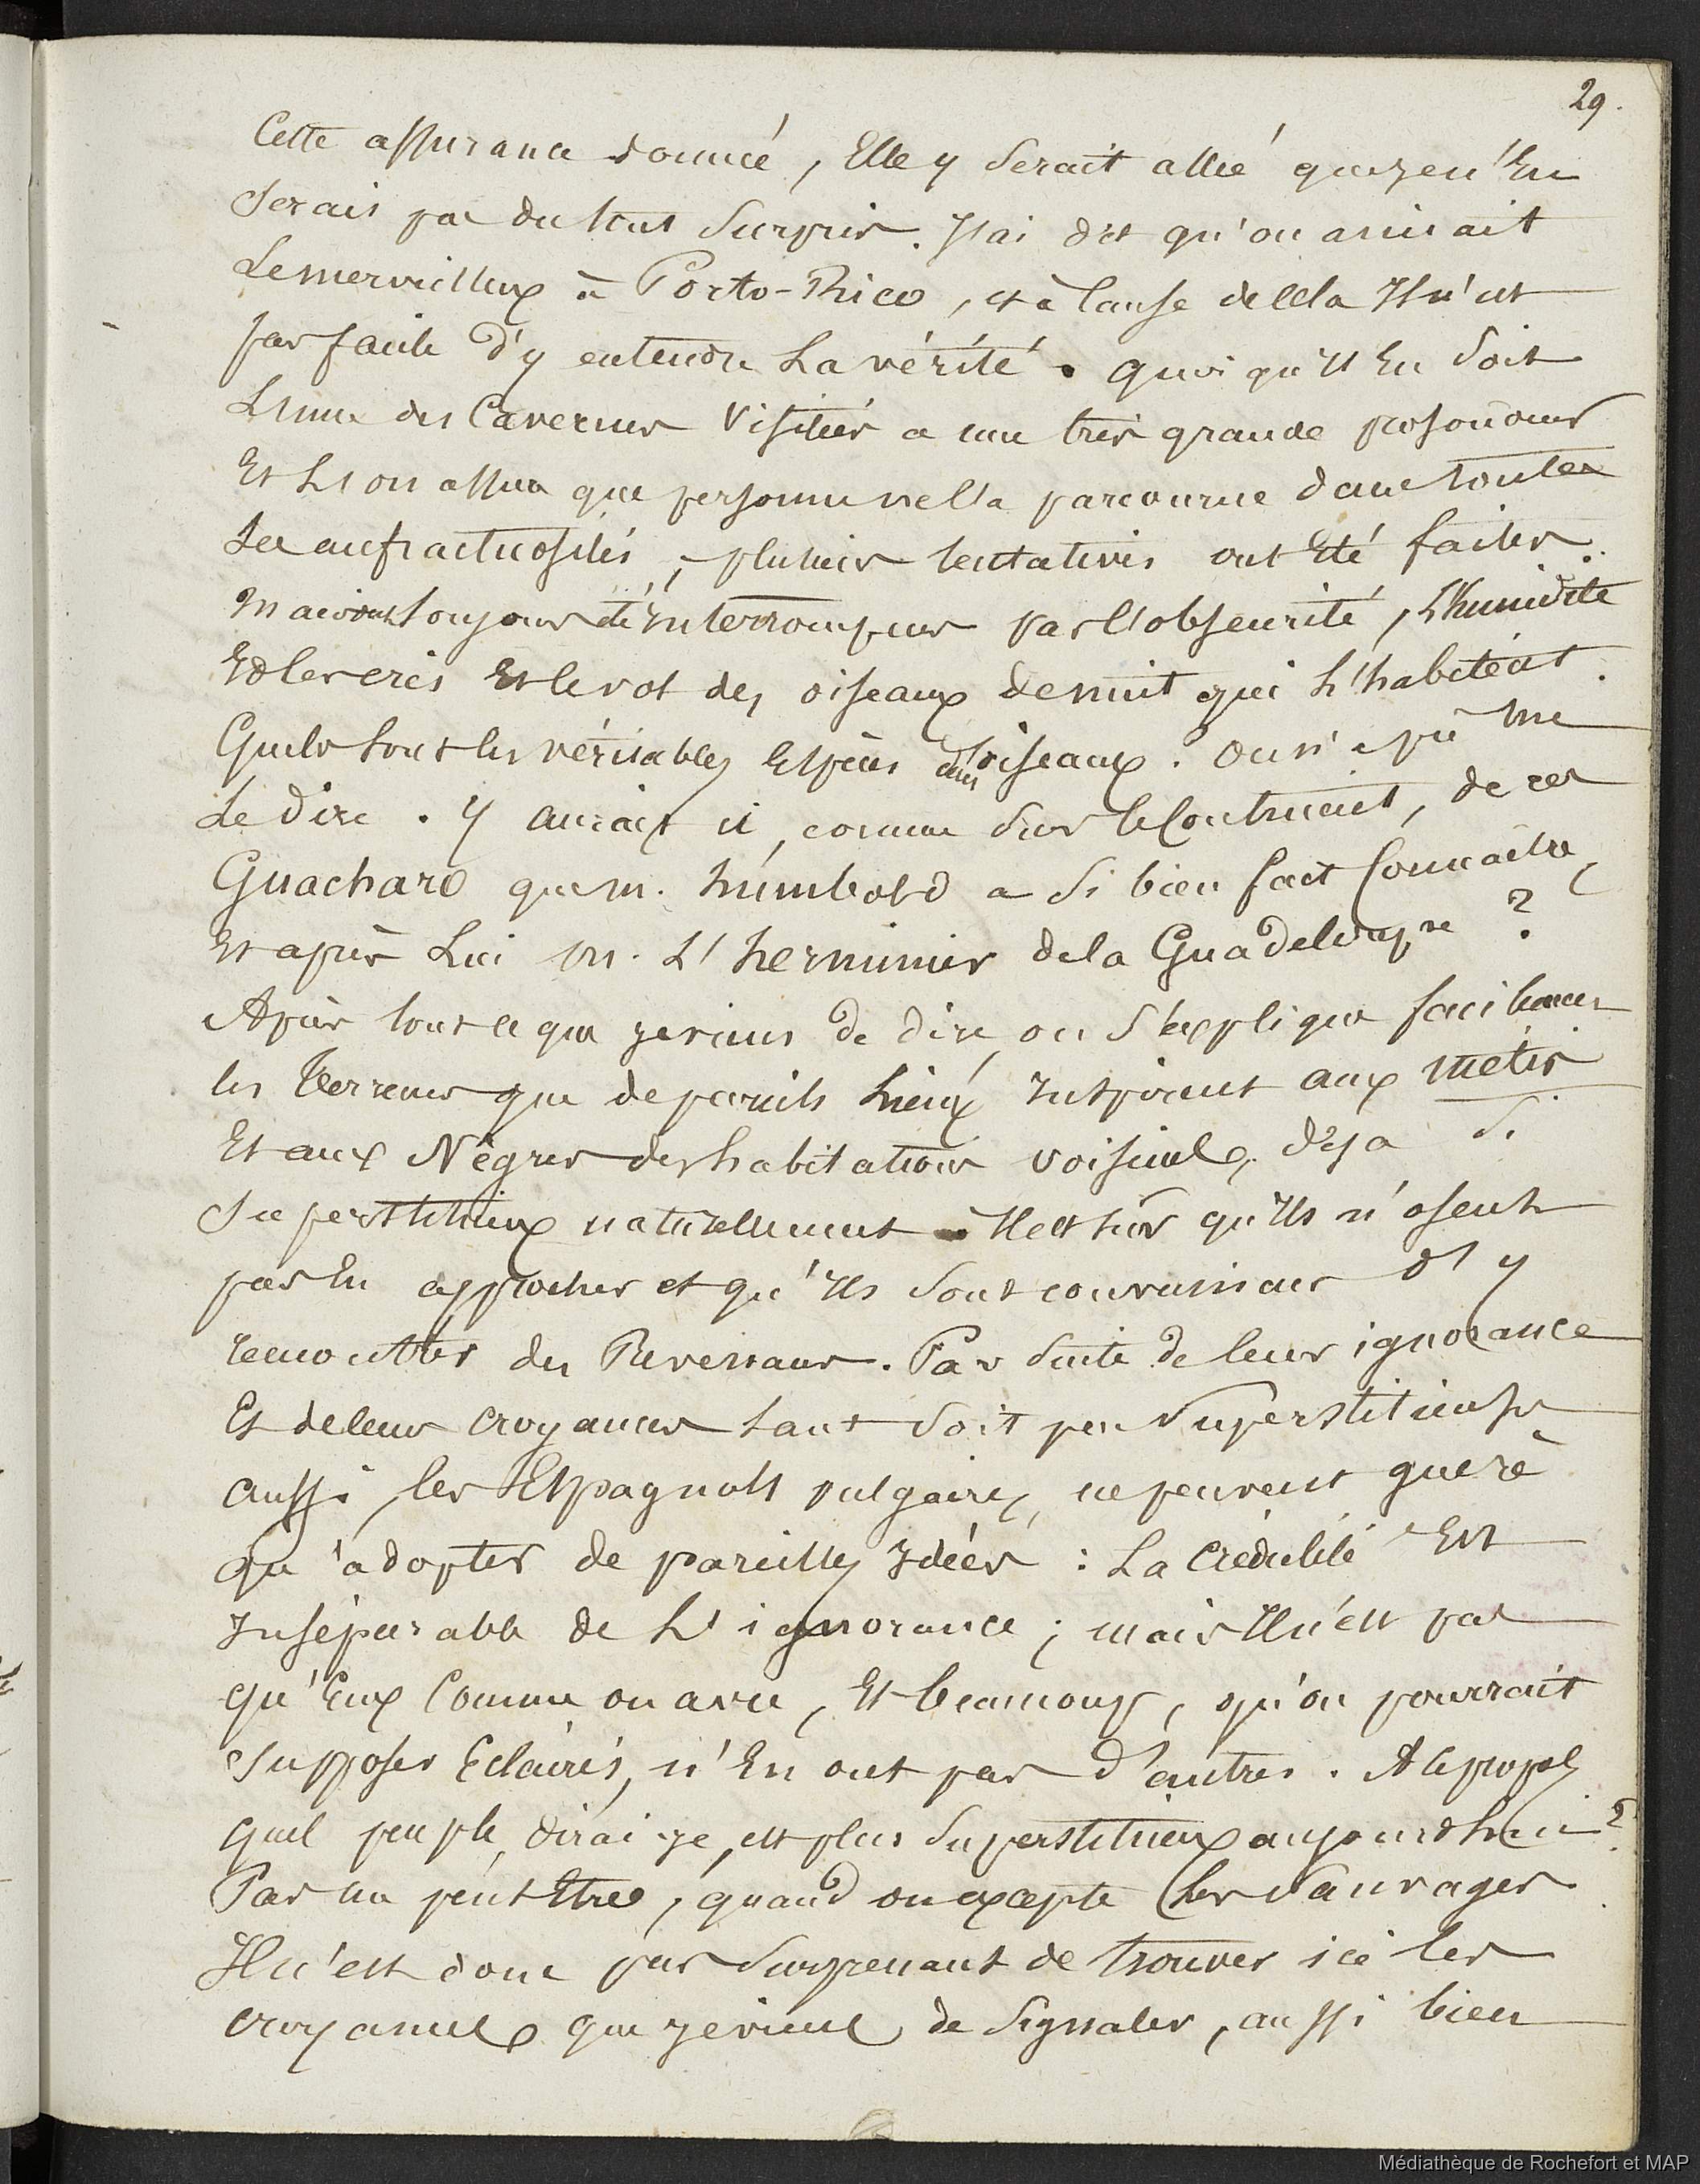 29.
Cette assurance donnée, Elle y serait allée que je n'En
serais pas du tout surpris. J'ai dit qu'on aimait
Le merveilleux à Porto-Rico, et à Cause de Cela Il n'est
pas facile d'y entendre La vérité. Quoi qu'Il En soit
L'une des Cavernes Visitées a une très grande profondeur
Et L'on assure que personne ne l'a parcourue dans toutes
Ses anfractuosités; plusieurs tentatives ont Eté faites.
Mais ont toujours été Interrompues par l'obscurité, L'humidité
Et les cris Et le vol des oiseaux de nuit qui L'habitent.
Quels sont les véritables Espèces d'oiseaux. On n'a pû me
Le dire. Y aurait il, comme sur le Continent, de ces
Guacharo que M. Humbold a si bien fait Connaître,
Et après Lui M. L'herminier de la Guadeloupe ?
Après tout ce que je viens de dire, on s'explique facilement
les Terreurs que de pareils Lieux Inspirent aux métis
Et aux Nègres des habitations voisines, déja si
superstitieux naturellement. Il est sûr qu'Ils n'osent
pas En approcher et qu'Ils sont convaincus d'y
rencontrer des Revenans. Par suite de leur ignorance
Et de leurs croyances tant soit peu superstitieuses
aussi, les Espagnols vulgaires, ne peuvent guère
qu'adopter de pareilles Idées : La Crédulité Est
Inséparable de L'ignorance; mais Il n'est pas
qu'Eux Comme on a vu, Et beaucoup, qu'on pourrait
supposer Eclairés, n'En ont pas d'autres. A ce propos
quel peuple, dirai-je, est plus superstitieux aujourd'hui ?
Pas un peut Etre, quand on excepte Les sauvages.
Il n'est donc pas surprenant de trouver ici les
croyances que je viens de signaler, aussi bien
Médiathèque de Rochefort et MAP